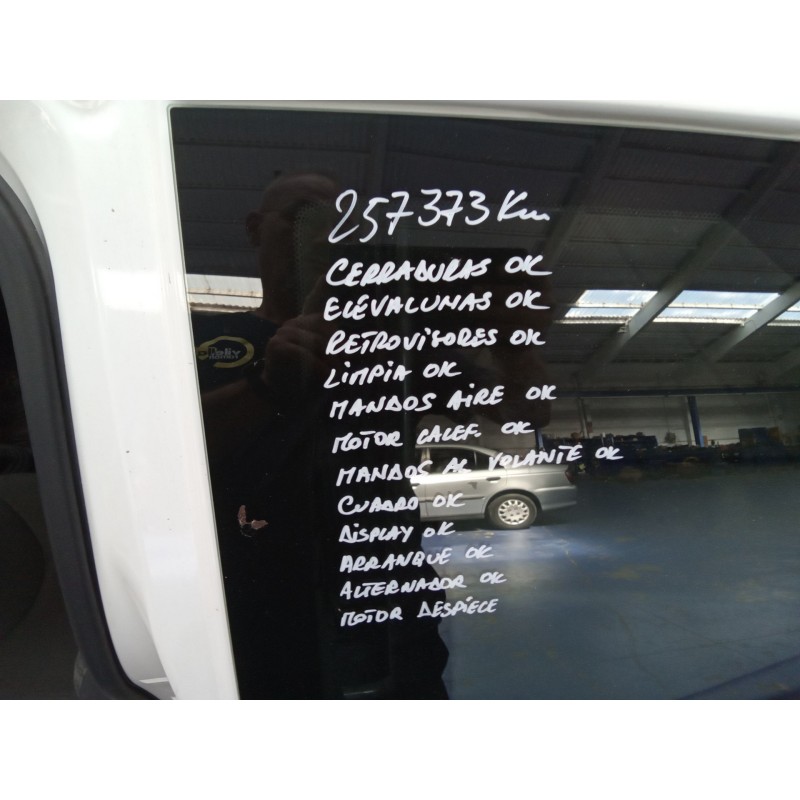 257373 Km
CERRADURAS OK
ELEVALUNAS OK
RETROVISORES OK
LIMPIA OK
MANDOS AIRE OK
MOTOR CALEF. OK
MANDOS AL VOLANTE OK
CUADRO OK
DISPLAY OK
ARRANQUE OK
ALTERNADOR OK
MOTOR DESPIECE